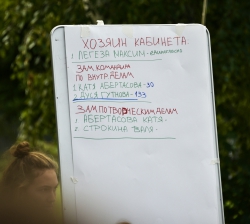 ХОЗЯИН КАБИНЕТА.
1 ЛЕГЕЗА МАКСИМ-
ЗАМ. КОМАНДИРА
ПО ВНУТР. ДЕЛАМ
1 КАТЯ АБЕРТАСОВА-30
2 ДУСЯ ГУТНОВА-133
ЗАМ ПО ТВОРЧЕСКИМ ДЕЛАМ
1 АБЕРТАСОВА КАТЯ
2 СТРОКИНА ВАЛЯ